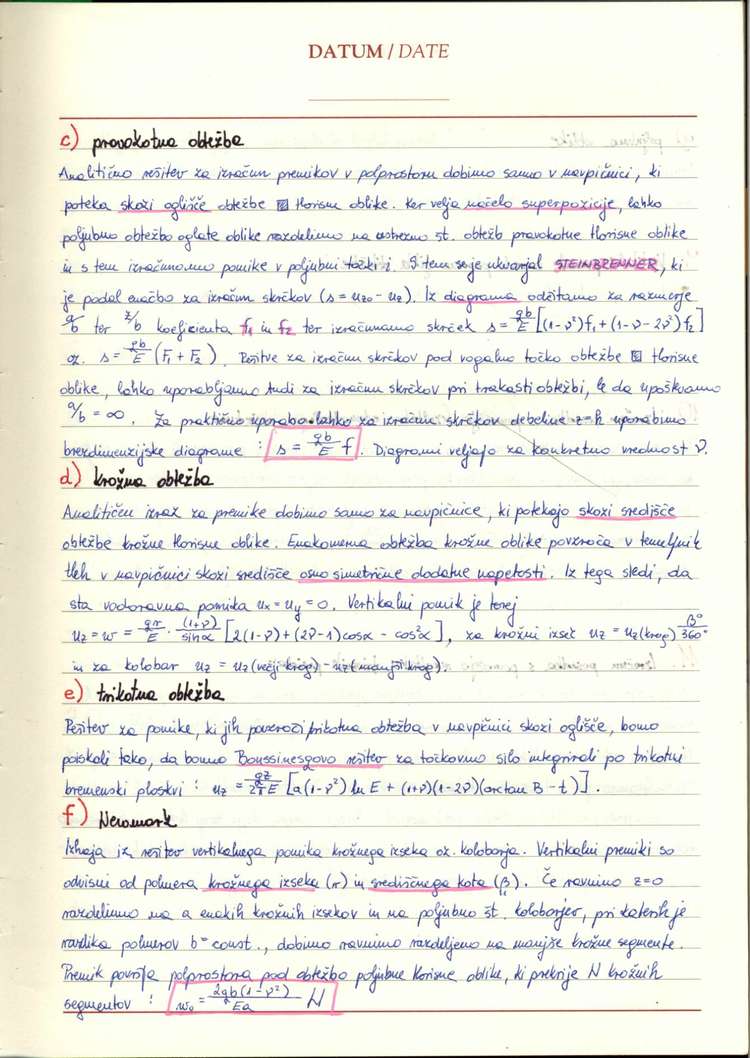 DATUM / DATE
c) pravokotna obtežba
Analitično rešitev za izračun premikov v polprostoru dobimo samo v navpičnici, ki
poteka skozi oglišče obtežbe tlorisne oblike. Ker velja načelo superpozicije, lahko
poljubno obtežbo oglate oblike razdelimo na ustrezno št. obtežb pravokotne tlorisne oblike
in s tem izračunamo pomike v poljubni točki i. S tem se je ukvarjal STEINBRENNER, ki
je podal enačbo za izračun skrčkov (s = uz0 - uz). Iz diagrama odčitamo za razmerje
a/b ter z/b koeficienta f1 in f2 ter izračunamo skrček s = qb/E [(1-ν²)f1 + (1-ν-2ν²)f2]
oz. s = qb/E (F1 + F2). Rešitve za izračun skrčkov pod vogalno točko obtežbe tlorisne
oblike, lahko uporabljamo tudi za izračun skrčkov pri trakasti obtežbi, le da upoštevamo
a/b = ∞. Za praktično uporabo lahko za izračun skrčkov debeline z=h uporabimo
brezdimenzijske diagrame : s = qb/E f. Diagrami veljajo za konkretno vrednost ν.
d) krožna obtežba
Analitičen izraz za premike dobimo samo za navpičnice, ki potekajo skozi središče
obtežbe krožne tlorisne oblike. Enakomerna obtežba krožne oblike povzroča v temeljnih
tleh v navpičnici skozi središče osno simetrične dodatne napetosti. Iz tega sledi, da
sta vodoravna pomika ux = uy = 0. Vertikalni pomik je torej
uz = w = qr/E · (1+ν)/sinα [2(1-ν) + (2ν-1)cosα - cos²α], za krožni izsek uz = uz(krog) β°/360°
in za kolobar uz = uz(večji krog) - uz(manjši krog).
e) trikotna obtežba
Rešitev za pomike, ki jih povzroči trikotna obtežba v navpičnici skozi oglišče, bomo
poiskali tako, da bomo Boussinesqovo rešitev za točkovno silo integrirali po trikotni
bremenski ploskvi : uz = qz/2πE [a(1-ν²) ln E + (1+ν)(1-2ν)(arctan B - t)].
f) Newmark
Izhaja iz rešitev vertikalnega pomika krožnega izseka oz. kolobarja. Vertikalni premiki so
odvisni od polmera krožnega izseka (r) in središčnega kota (β). Če ravnino z=0
razdelimo na a enakih krožnih izsekov in na poljubno št. kolobarjev, pri katerih je
razlika polmerov b = const., dobimo ravnino razdeljeno na manjše krožne segmente.
Premik površja polprostora pod obtežbo poljubne tlorisne oblike, ki prekrije N krožnih
segmentov : w0 = 2qb(1-ν²)/Ea N